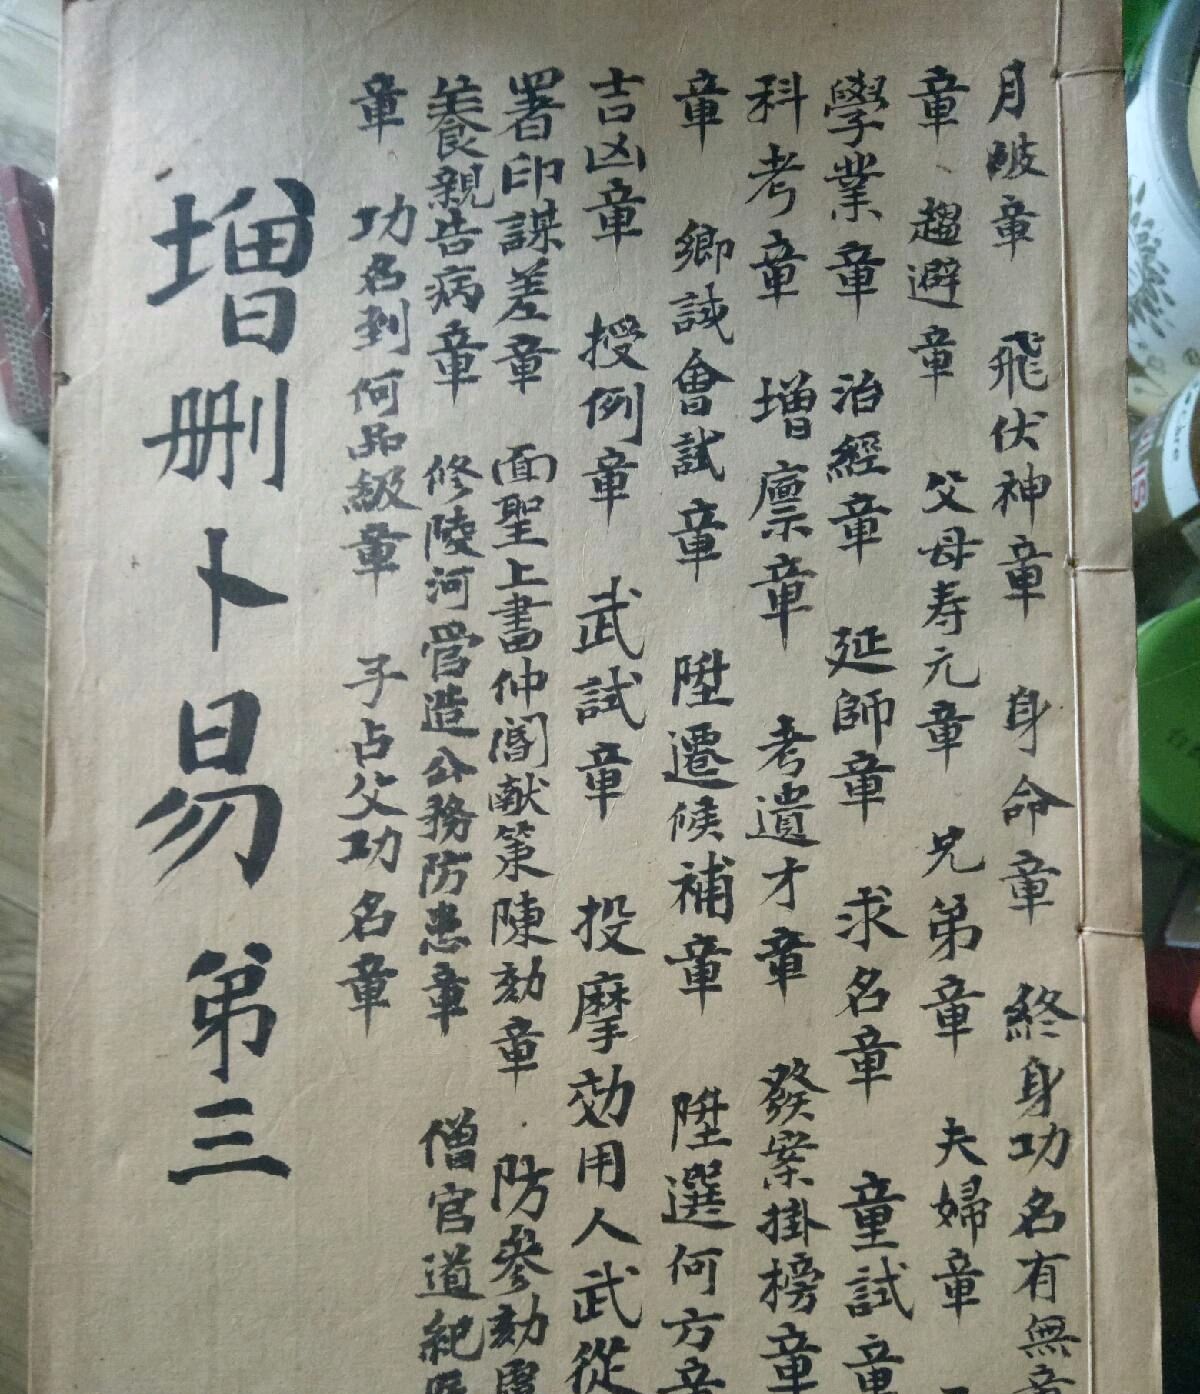 月破章 飛伏神章 身命章 終身功名有無章
章 趨避章 父母寿元章 兄弟章 夫婦章
學業章 治經章 延師章 求名章 童試章
科考章 增廪章 考遺才章 發案掛榜章
章 鄉試會試章 陞遷候補章 陞選何方章
吉凶章 授例章 武試章 投麾効用人武從
署印謀差章 面聖上書仲閽献策陳劾章 防參劾
養親告病章 修陵河營造公務防患章 僧官道紀
章 功名到何品級章 子占父功名章
增删卜易 第三